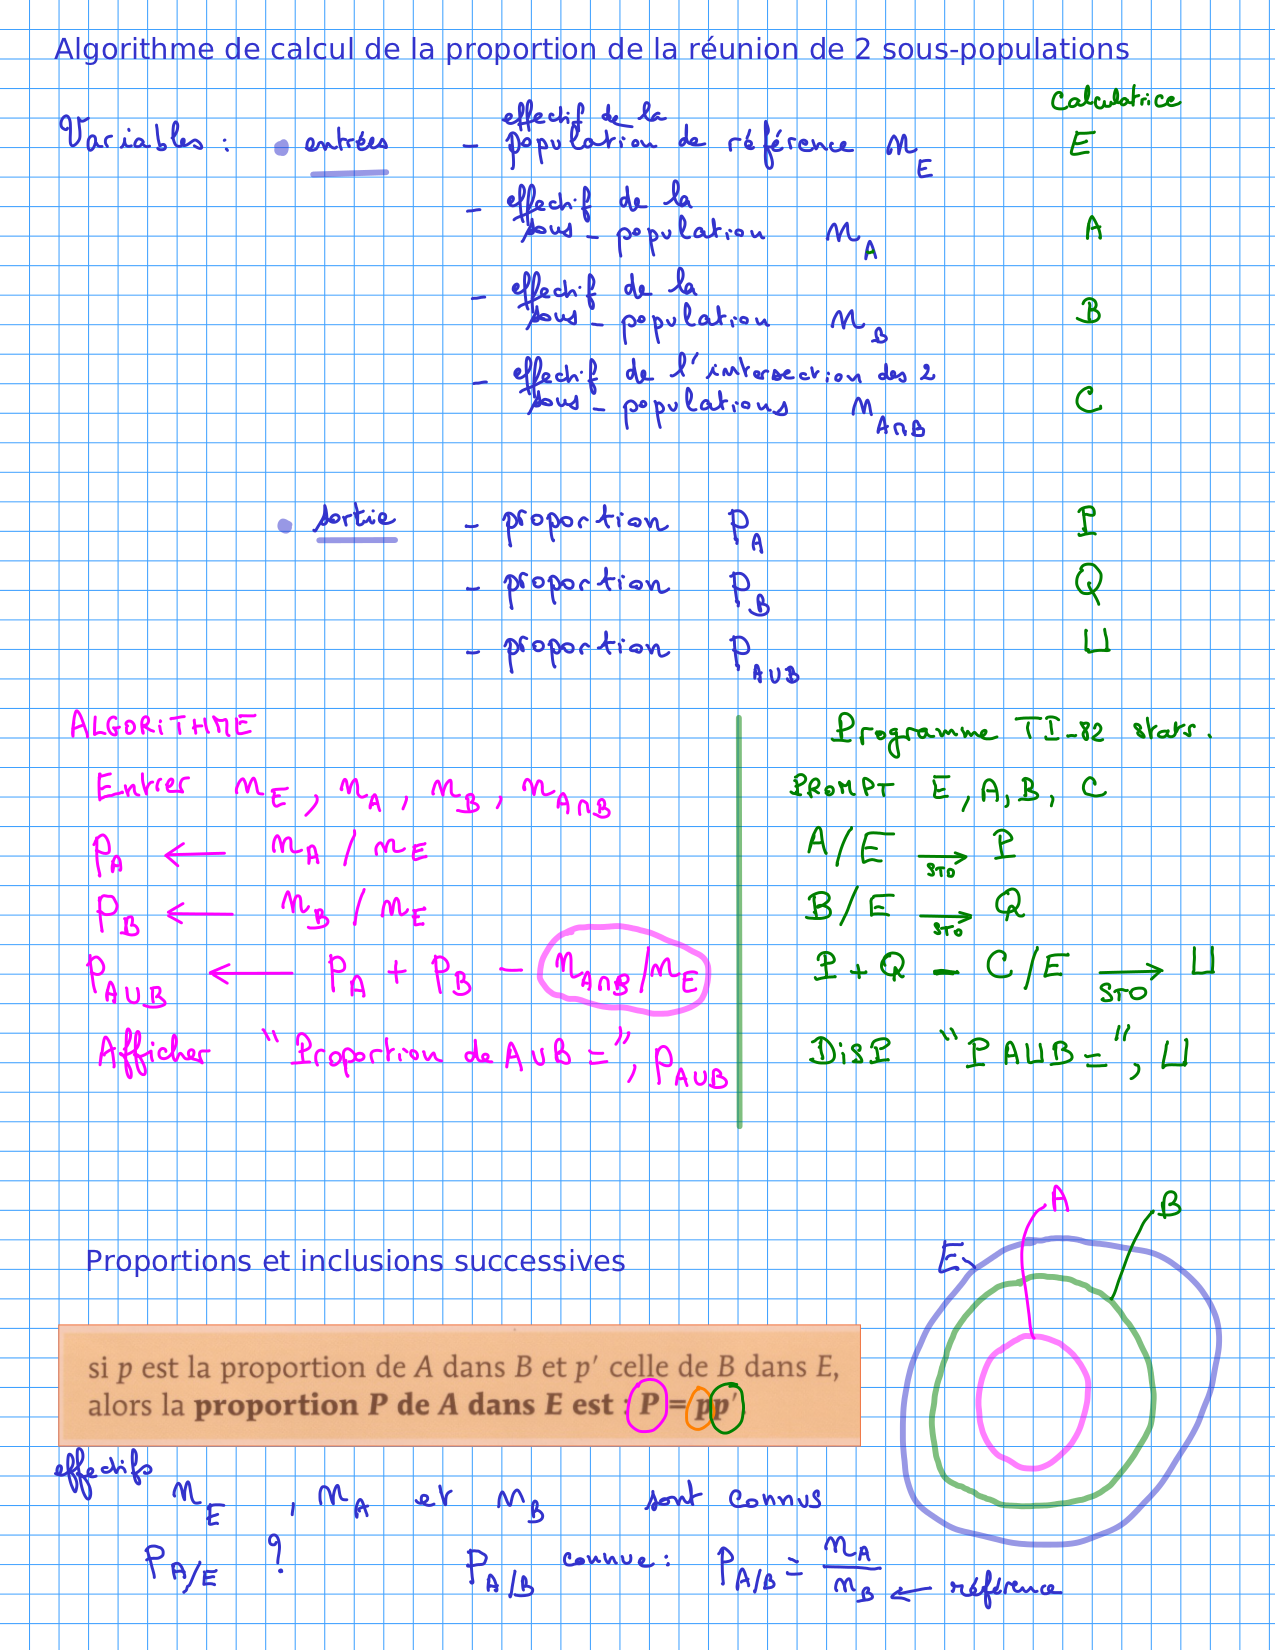 Algorithme de calcul de la proportion de la réunion de 2 sous-populations
Calculatrice
Variables : • entrées - effectif de la population de référence n_E E
- effectif de la sous-population n_A A
- effectif de la sous-population n_B B
- effectif de l'intersection des 2 sous-populations n_A∩B C
• sortie - proportion P_A P
- proportion P_B Q
- proportion P_A∪B U
ALGORITHME
Entrer n_E, n_A, n_B, n_A∩B
P_A ← n_A / n_E
P_B ← n_B / n_E
P_A∪B ← P_A + P_B - n_A∩B/n_E
Afficher "Proportion de A∪B =", P_A∪B
Programme TI-82 stats.
PROMPT E, A, B, C
A/E →STO P
B/E →STO Q
P+Q - C/E →STO U
DISP "P AUB=", U
Proportions et inclusions successives
A
B
E
si p est la proportion de A dans B et p' celle de B dans E,
alors la proportion P de A dans E est : P = pp'
effectifs n_E, n_A et n_B sont connus
P_A/E ? P_A/B connue : P_A/B = n_A/n_B ← référence